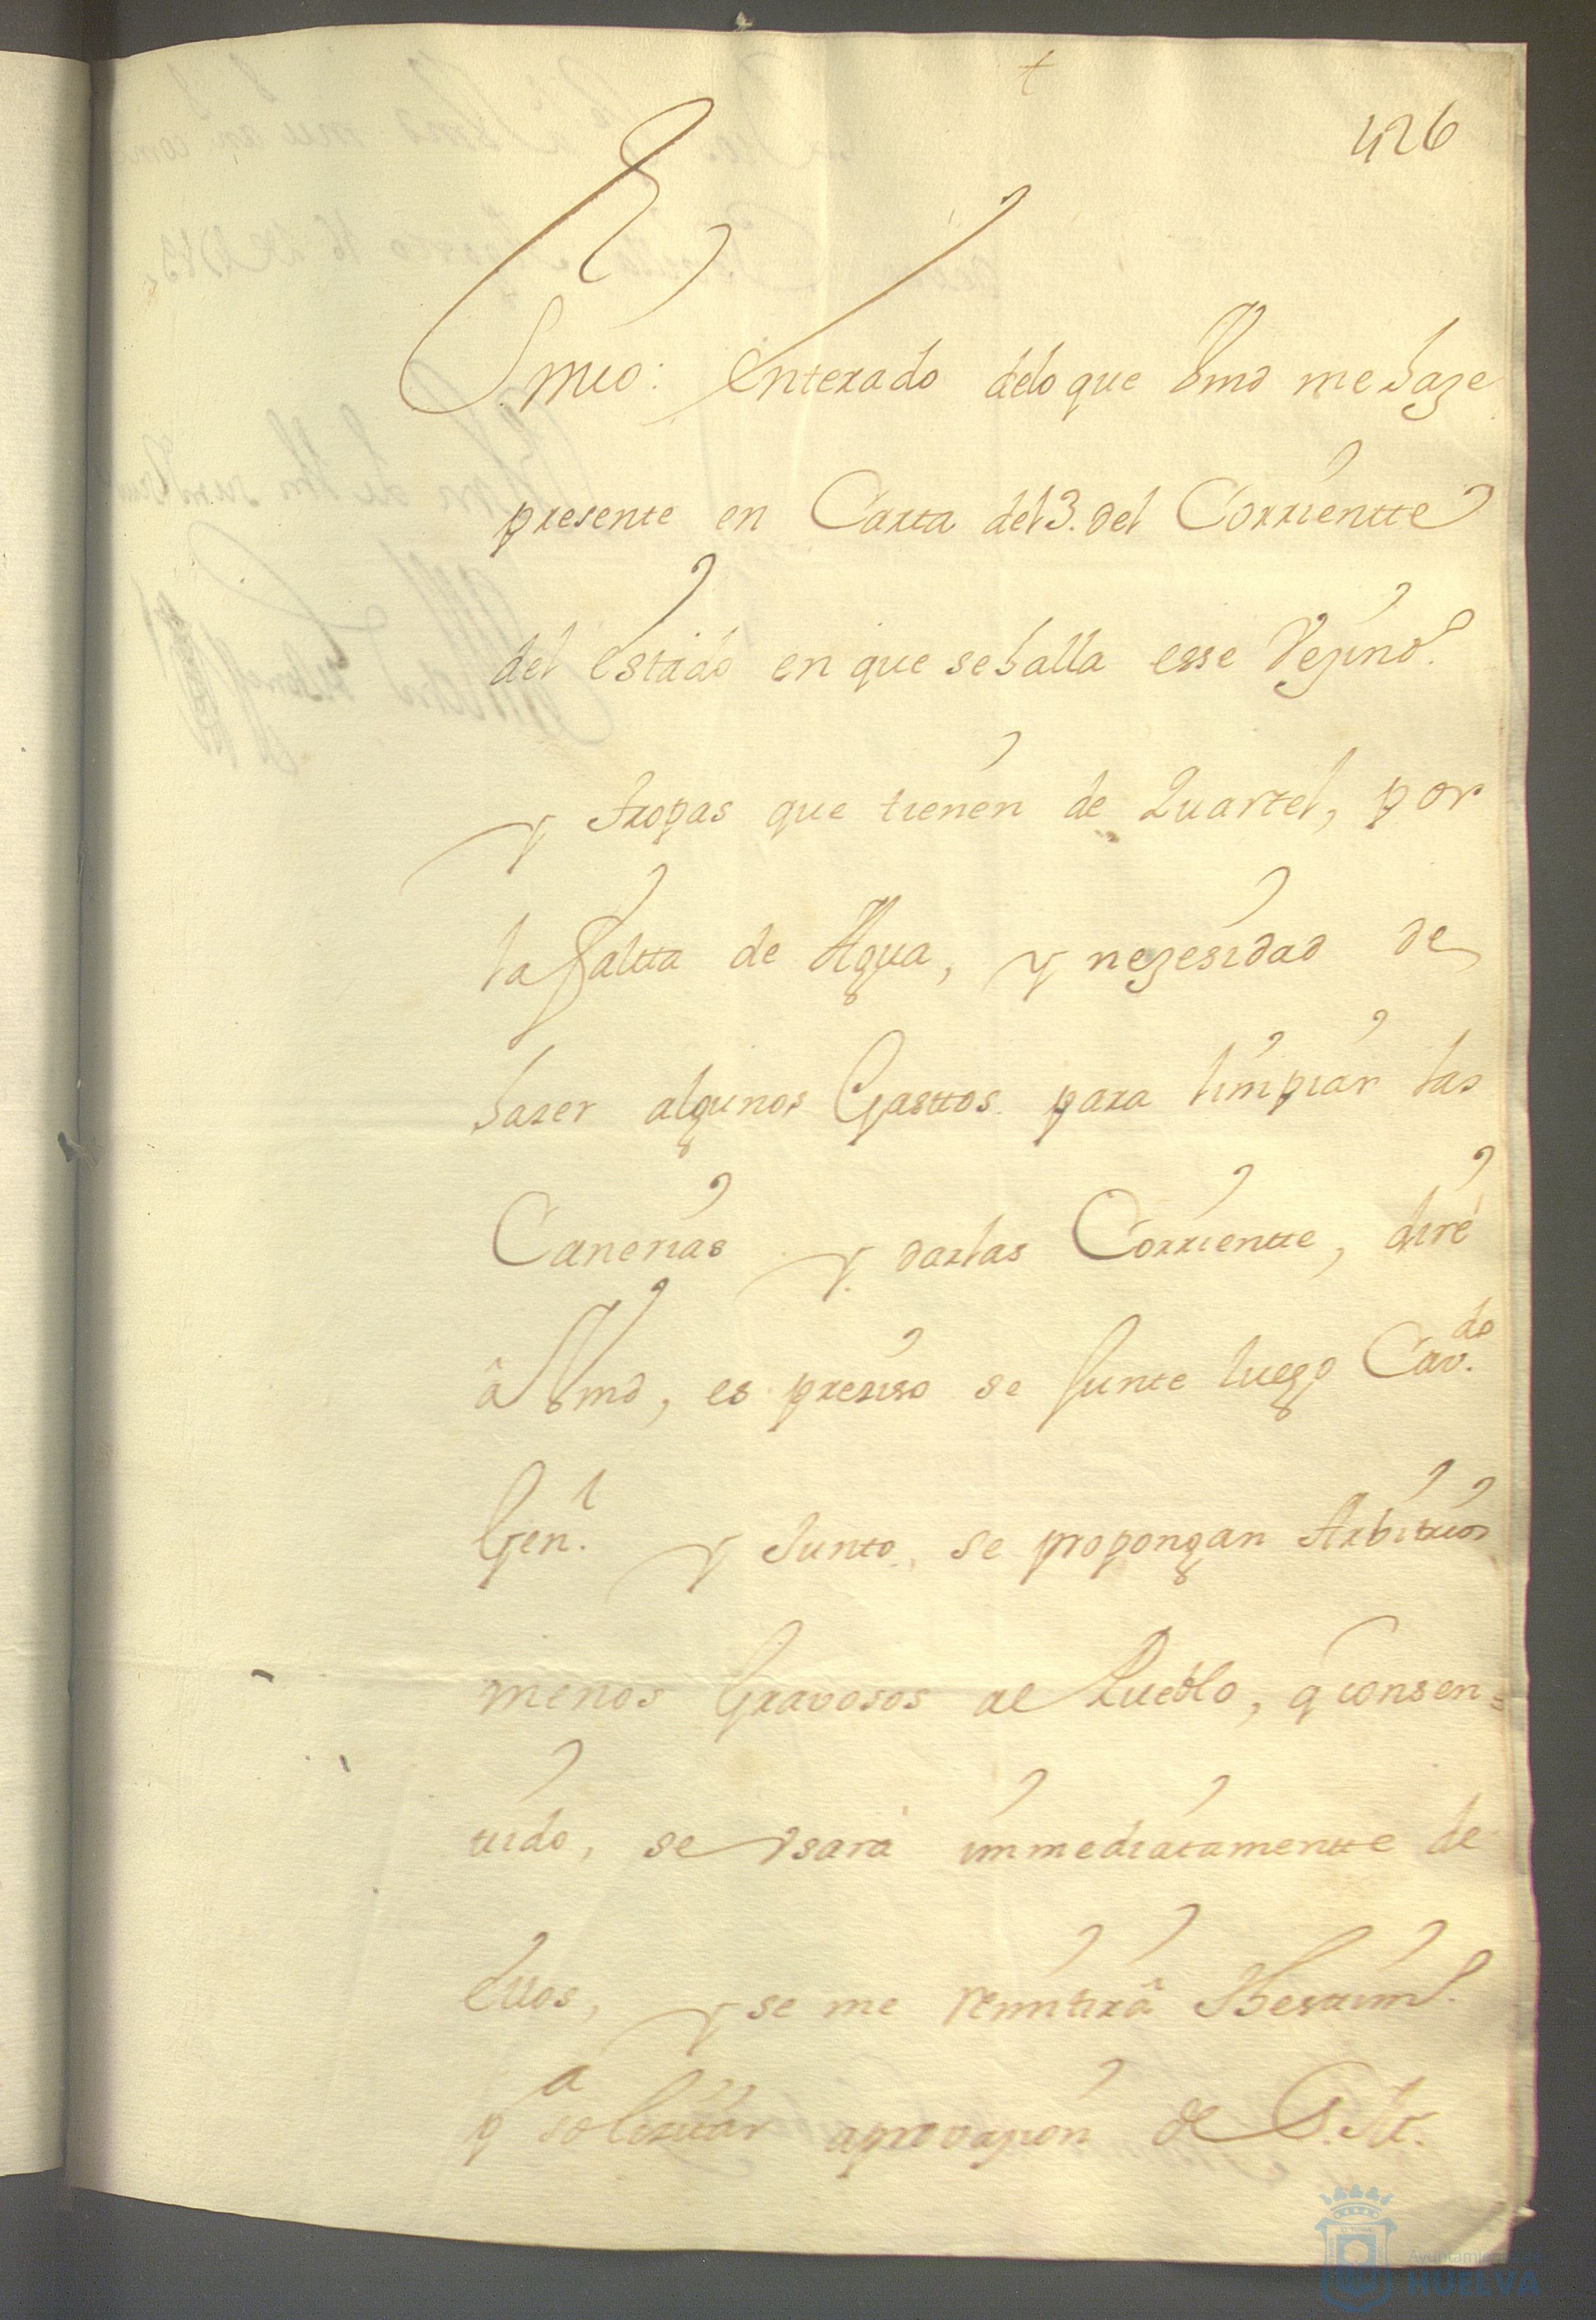 +
426
S.r mio: Enterado delo que Vmd me haze
presente en Carta del 3. del Corrientte
del estado en que se halla esse Vezind.º
y tropas que tienen de Quartel, por
la faltta de Agua, y nezesidad de
hazer algunos Gasttos para limpiar las
Canerias y darlas Corrientte, diré
â Vmd, es preziso se Junte luego Cav.do
Gen.l y Junto se propongan Arbitrios
menos Gravosos al Pueblo, q consen=
tido, se vsará immediatamentte de
ellos, y se me remitirâ Thestim.º
p.a solizittar aprovazion de S. M.
Ayuntamiento
HUELVA